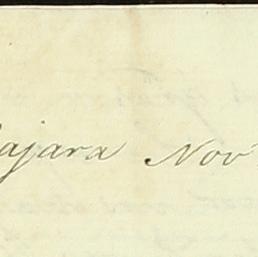 ajara Nov